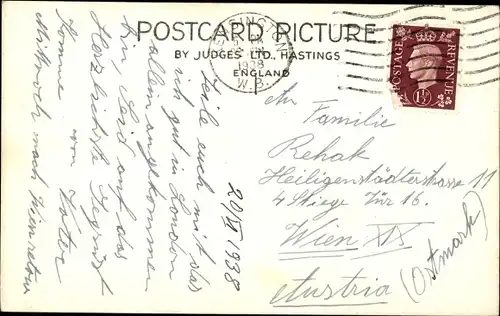 POSTCARD PICTURE
BY JUDGES' LTD., HASTINGS
ENGLAND
KENSINGTON
1938
W.8.
POSTAGE
REVENUE
1½
An Familie
Rehak
Heiligenstädterstrasse 11
4 Stiege Tür 16.
Wien XIX
(Ostmark)
Austria
20 1938
Teile euch mit das
ich gut in London
allein angekommen
bin, Seid auf das
Herzlichste Gegrüst
vom Vater
Komme
Mittwoch nach Wien retour